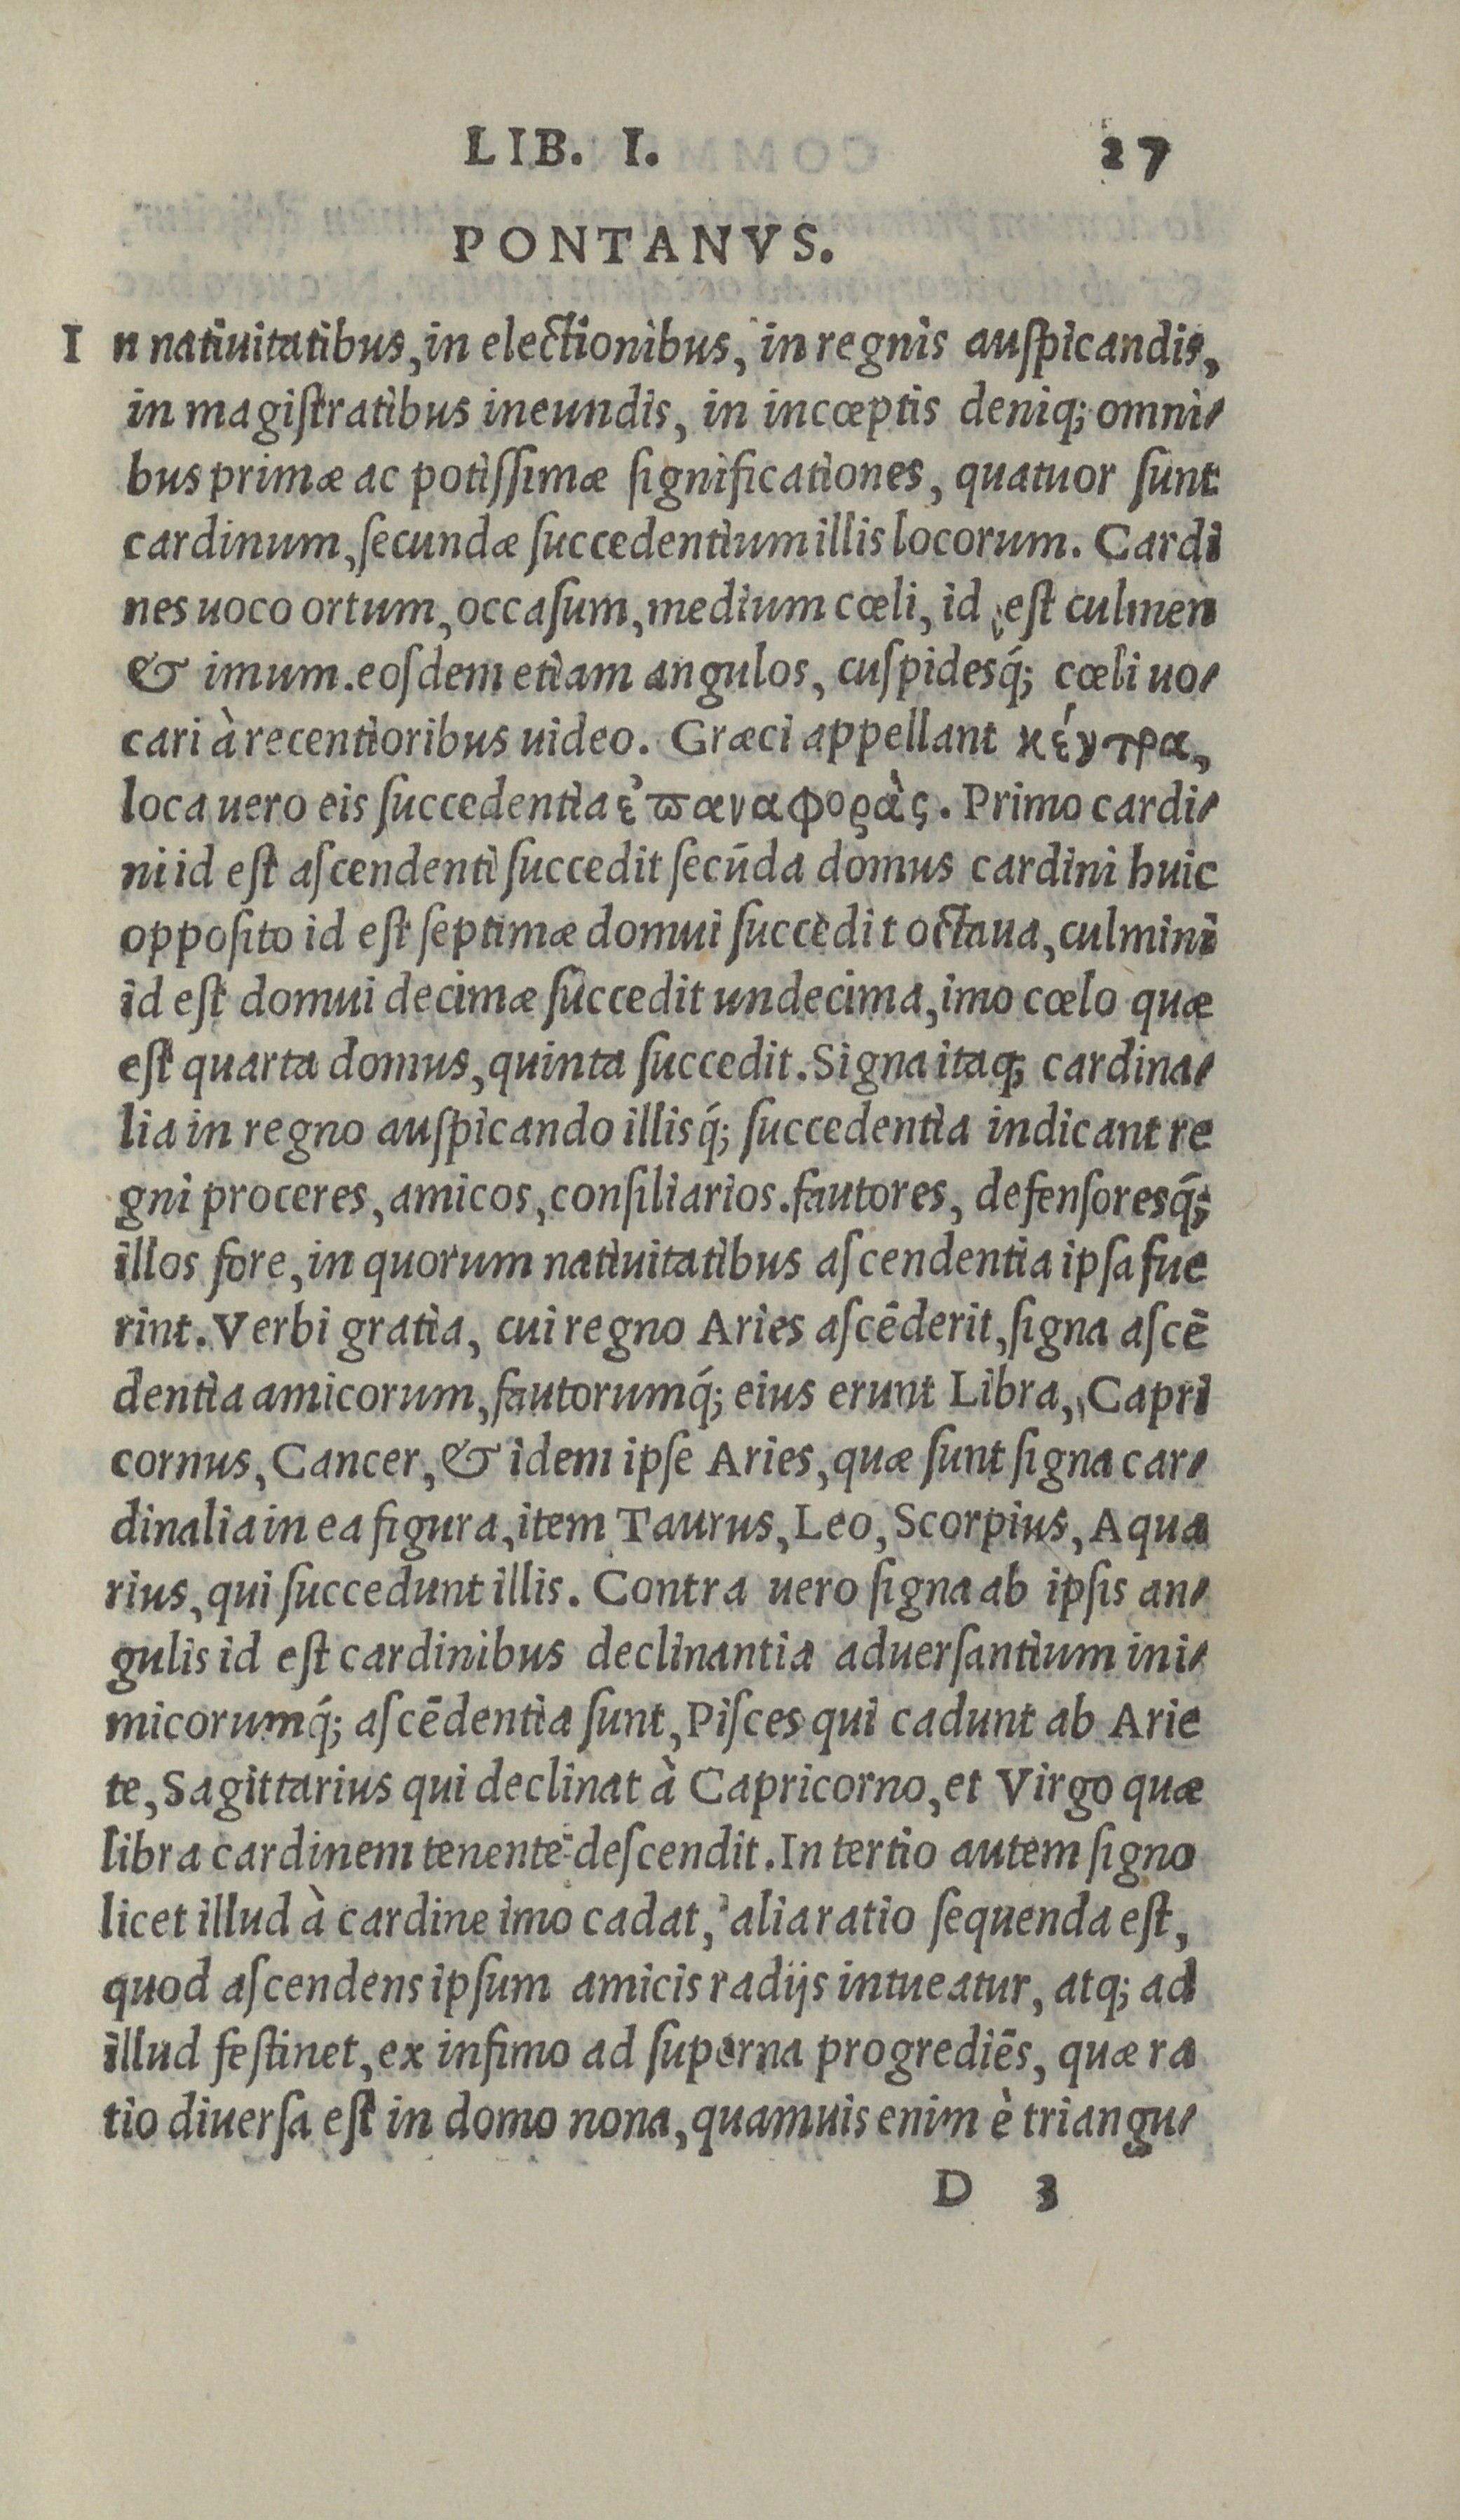 LIB. I. 27
PONTANVS.
In natiuitatibus, in electionibus, in regnis auſpicandis,
in magiſtratibus ineundis, in incœptis deniq; omni-
bus primæ ac potiſſimæ ſignificationes, quatuor ſunt
cardinum, ſecundæ ſuccedentium illis locorum. Cardi
nes uoco ortum, occaſum, medium cœli, id eſt culmen
& imum. eoſdem etiam angulos, cuſpidesq́; cœli uo-
cari à recentioribus uideo. Græci appellant κέντρα,
loca uero eis ſuccedentia ἐπαναφορὰς. Primo cardi-
ni id eſt aſcendenti ſuccedit ſecūda domus cardini huic
oppoſito id eſt ſeptimæ domui ſuccedit octaua, culmini
id eſt domui decimæ ſuccedit undecima, imo cœlo quæ
eſt quarta domus, quinta ſuccedit. Signa itaq; cardina-
lia in regno auſpicando illisq́; ſuccedentia indicant re
gni proceres, amicos, conſiliarios. fautores, defenſoresq́;
illos fore, in quorum natiuitatibus aſcendentia ipſa fue
rint. Verbi gratia, cui regno Aries aſcēderit, ſigna aſcē
dentia amicorum, fautorumq́; eius erunt Libra, Capri
cornus, Cancer, & idem ipſe Aries, quæ ſunt ſigna car-
dinalia in ea figura, item Taurus, Leo, Scorpius, Aqua
rius, qui ſuccedunt illis. Contra uero ſigna ab ipſis an-
gulis id eſt cardinibus declinantia aduerſantium ini-
micorumq́; aſcēdentia ſunt, Piſces qui cadunt ab Arie
te, Sagittarius qui declinat à Capricorno, et Virgo quæ
libra cardinem tenente deſcendit. In tertio autem ſigno
licet illud à cardine imo cadat, alia ratio ſequenda eſt,
quod aſcendens ipſum amicis radijs intueatur, atq; ad
illud feſtinet, ex infimo ad ſuperna progrediēs, quæ ra
tio diuerſa eſt in domo nona, quamuis enim è triangu-
D 3